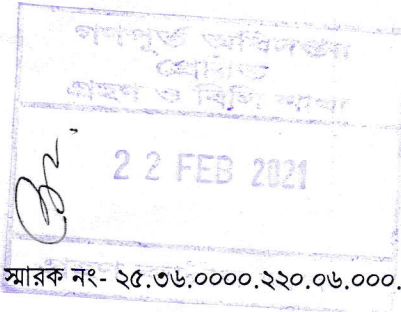 গণপূর্ত অধিদপ্তর
প্রেরিত
গ্রহণ ও বিলি শাখা
22 FEB 2021
স্মারক নং- ২৫.৩৬.০০০০.২২০.০৬.০০০.